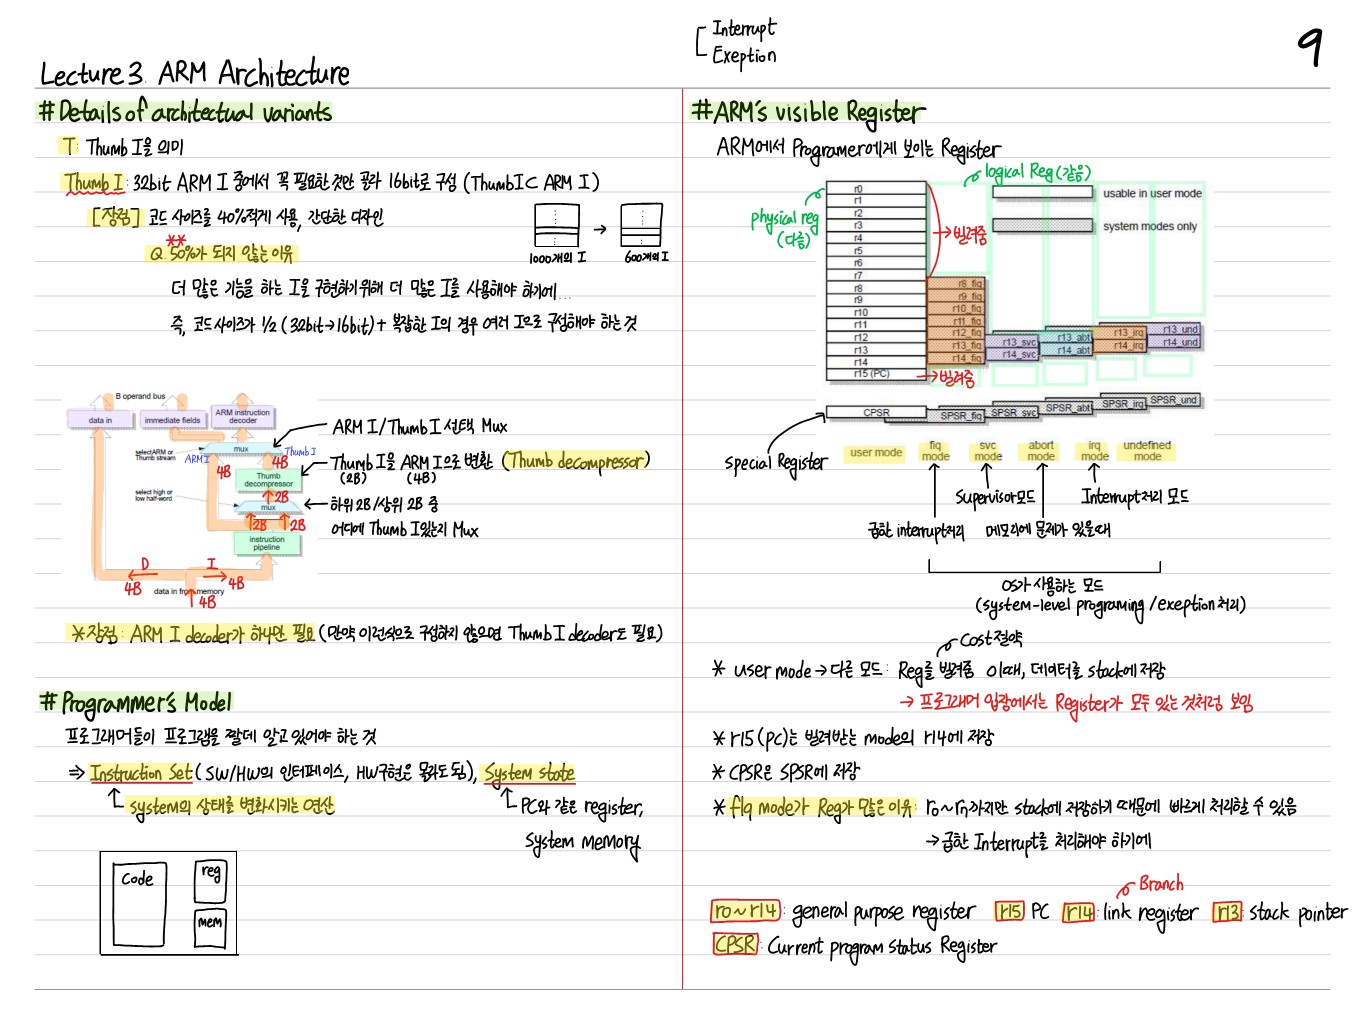 Interrupt
Exeption
9
Lecture 3. ARM Architecture
# Details of architectual variants
T: Thumb I을 의미
Thumb I : 32bit ARM I 중에서 꼭 필요한것만 골라 16bit로 구성 (Thumb I ⊂ ARM I)
[장점] 코드 사이즈를 40%적게 사용, 간단한 디자인
**
Q. 50%가 되지 않는 이유
1000개의 I → 600개의 I
더 많은 기능을 하는 I을 구현하기위해 더 많은 I를 사용해야 하기에...
즉, 코드사이즈가 1/2 (32bit→16bit) + 복잡한 I의 경우 여러 I으로 구성해야 하는 것
B operand bus
data in
immediate fields
ARM instruction decoder
select ARM or Thumb stream
mux
ARM I
Thumb I
4B
4B
Thumb decompressor
2B
select high or low half-word
mux
2B
2B
instruction pipeline
D
I
4B
4B
data in from memory
4B
ARM I / Thumb I 선택 Mux
Thumb I을 ARM I으로 변환 (Thumb decompressor)
(2B) (4B)
하위 2B/상위 2B 중
어디에 Thumb I있는지 Mux
*장점 : ARM I decoder가 하나만 필요 (만약 이런식으로 구성하지 않으면 Thumb I decoder도 필요)
# Programmer's Model
프로그래머들이 프로그램을 짤데 알고 있어야 하는 것
⇒ Instruction Set (SW/HW의 인터페이스, HW구현은 몰라도 됨), System state
system의 상태를 변화시키는 연산
PC와 같은 register,
System memory
Code
reg
mem
# ARM's visible Register
ARM에서 Programer에게 보이는 Register
logical Reg (같음)
physical reg
(다름)
r0
r1
r2
r3
r4
r5
r6
r7
r8
r9
r10
r11
r12
r13
r14
r15 (PC)
→빌려줌
→빌려줌
usable in user mode
system modes only
r8_fiq
r9_fiq
r10_fiq
r11_fiq
r12_fiq
r13_fiq
r14_fiq
r13_svc
r14_svc
r13_abt
r14_abt
r13_irq
r14_irq
r13_und
r14_und
CPSR
SPSR_fiq
SPSR_svc
SPSR_abt
SPSR_irq
SPSR_und
Special Register
user mode
fiq mode
svc mode
abort mode
irq mode
undefined mode
Supervisor모드
Interrupt처리 모드
급한 interrupt처리
메모리에 문제가 있을때
OS가 사용하는 모드
(system-level programing / exeption처리)
Cost 절약
* user mode → 다른 모드 : Reg를 빌려줌 이때, 데이터를 stack에 저장
→ 프로그래머 입장에서는 Register가 모두 있는 것처럼 보임
* r15 (pc)는 빌려받는 mode의 r14에 저장
* CPSR은 SPSR에 저장
* fiq mode가 Reg가 많은 이유 : r0~r7까지만 stack에 저장하기 때문에 빠르게 처리할 수 있음
→ 급한 Interrupt를 처리해야 하기에
Branch
r0~r14 : general purpose register r15 PC r14 : link register r13 : stack pointer
CPSR : Current program status Register